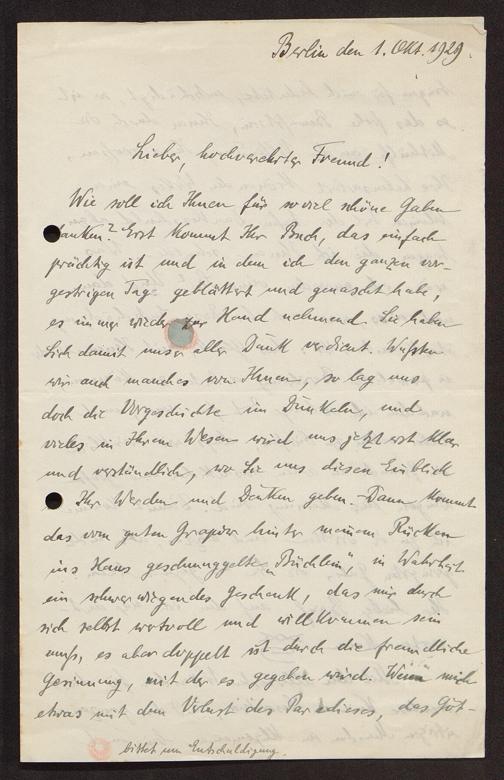 Berlin den 1. Okt. 1929.
Lieber, hochverehrter Freund!
Wie soll ich Ihnen für so viel schöne Gaben
danken? Erst kommt Ihr Buch, das einfach
prächtig ist und in dem ich den ganzen vor-
gestrigen Tag geblättert und genascht habe,
es immer wieder zur Hand nehmend. Sie haben
Sich damit unser aller Dank verdient. Wußten
wir auch manches von Ihnen, so lag uns
doch die Vorgeschichte im Dunkeln, und
vieles in Ihrem Wesen wird uns jetzt erst klar
und verständlich, wo Sie uns diesen Einblick
Ihr Werden und Denken geben. Dann kommt
das vom guten hinter meinem Rücken
ins Haus geschmuggelte „Büchlein" in Wahrheit
ein schwerwiegendes Geschenk, das mir durch
sich selbst wertvoll und willkommen sein
muß, es aber doppelt ist durch die freundliche
Gesinnung, mit der es gegeben wird. Wenn mich
etwas mit dem Verlust des Paradieses, das Göt-
bittet um Entschuldigung.